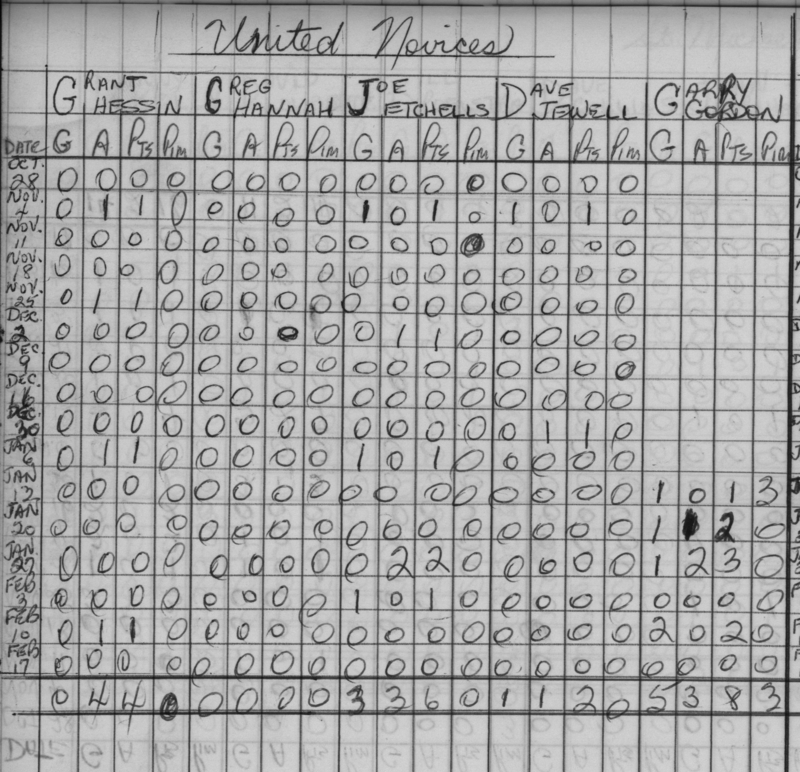 United Novices
GRANT HESSIN GREG HANNAH JOE ETCHELLS DAVE JEWELL GARRY GORDON
DATE G A PTS PIM G A PTS PIM G A PTS PIM G A PTS PIM G A PTS PIM
OCT. 28 0 0 0 0 0 0 0 0 0 0 0 0 0 0 0 0
NOV. 4 0 1 1 0 0 0 0 0 1 0 1 0 1 0 1 0
NOV. 11 0 0 0 0 0 0 0 0 0 0 0 0 0 0 0 0
NOV. 18 0 0 0 0 0 0 0 0 0 0 0 0 0 0 0 0
NOV. 25 0 1 1 0 0 0 0 0 0 0 0 0 0 0 0 0
DEC 2 0 0 0 0 0 0 0 0 0 1 1 0 0 0 0 0
DEC 9 0 0 0 0 0 0 0 0 0 0 0 0 0 0 0 0
DEC. 16 0 0 0 0 0 0 0 0 0 0 0 0 0 0 0 0
DEC. 30 0 0 0 0 0 0 0 0 0 0 0 0 0 1 1 0
JAN 6 0 1 1 0 0 0 0 0 1 0 1 0 0 0 0 0
JAN 13 0 0 0 0 0 0 0 0 0 0 0 0 0 0 0 0 1 0 1 3
JAN 20 0 0 0 0 0 0 0 0 0 0 0 0 0 0 0 0 1 1 2 0
JAN. 27 0 0 0 0 0 0 0 0 0 2 2 0 0 0 0 0 1 2 3 0
FEB 3 0 0 0 0 0 0 0 0 1 0 1 0 0 0 0 0 0 0 0 0
FEB 10 0 1 1 0 0 0 0 0 0 0 0 0 0 0 0 0 2 0 2 0
FEB 17 0 0 0 0 0 0 0 0 0 0 0 0 0 0 0 0 0 0 0 0
0 4 4 0 0 0 0 0 3 3 6 0 1 1 2 0 5 3 8 3